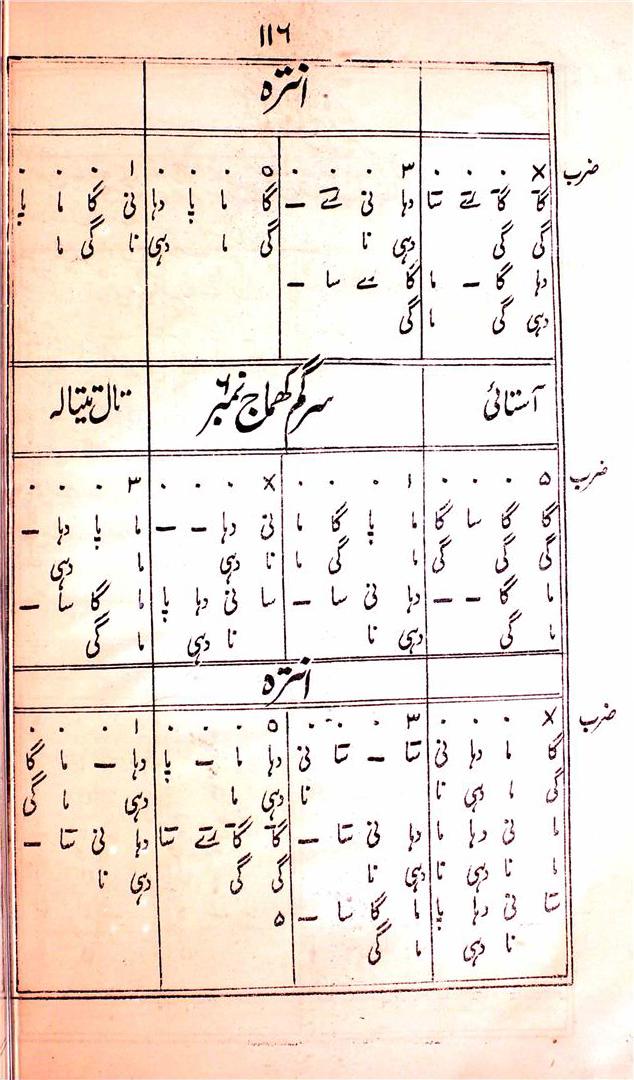 ۱۱۶
انترہ
ضرب × ۰ ۰ ۰ ۳ ۰ ۰ ۰ ۵ ۰ ۰ ۰ ۱ ۰ ۰ ۰
گا گا رے سا دہا نی رے – گا ما پا دہا نی گا ما پا
گی گی دہی نا گی ما دہی نا گی ما
دہا گا – ما گا رے سا –
دہی گی ما گی
آستائی سرگم کھماج نمبر ۶ تال تیتالہ
ضرب ۵ ۰ ۰ ۰ ۱ ۰ ۰ ۰ × ۰ ۰ ۰ ۳ ۰ ۰ ۰
گا گا سا گا ما پا گا ما نی دہا – – ما پا دہا –
گی گی گی ما گی ما نا دہی ما دہی
ما گا – – دہا نی سا – سا نی دہا پا ما گا سا –
ما گی دہی نا نا دہی ما گی
انترہ
ضرب × ۰ ۰ ۰ ۳ ۰ ۰ ۰ ۵ ۰ ۰ ۰ ۱ ۰ ۰ ۰
گا ما دہا نی سا – سا نی دہا ما – پا دہا – ما گا
گی ما دہی نا نا دہی ما دہی ما گی
ما نی دہا ما دہا نی سا – گا گا رے سا دہا نی سا –
ما نا دہی نا دہی نا گی گی دہی نا
سا نی دہا پا ما گا سا – ۵
نا دہی ما گی